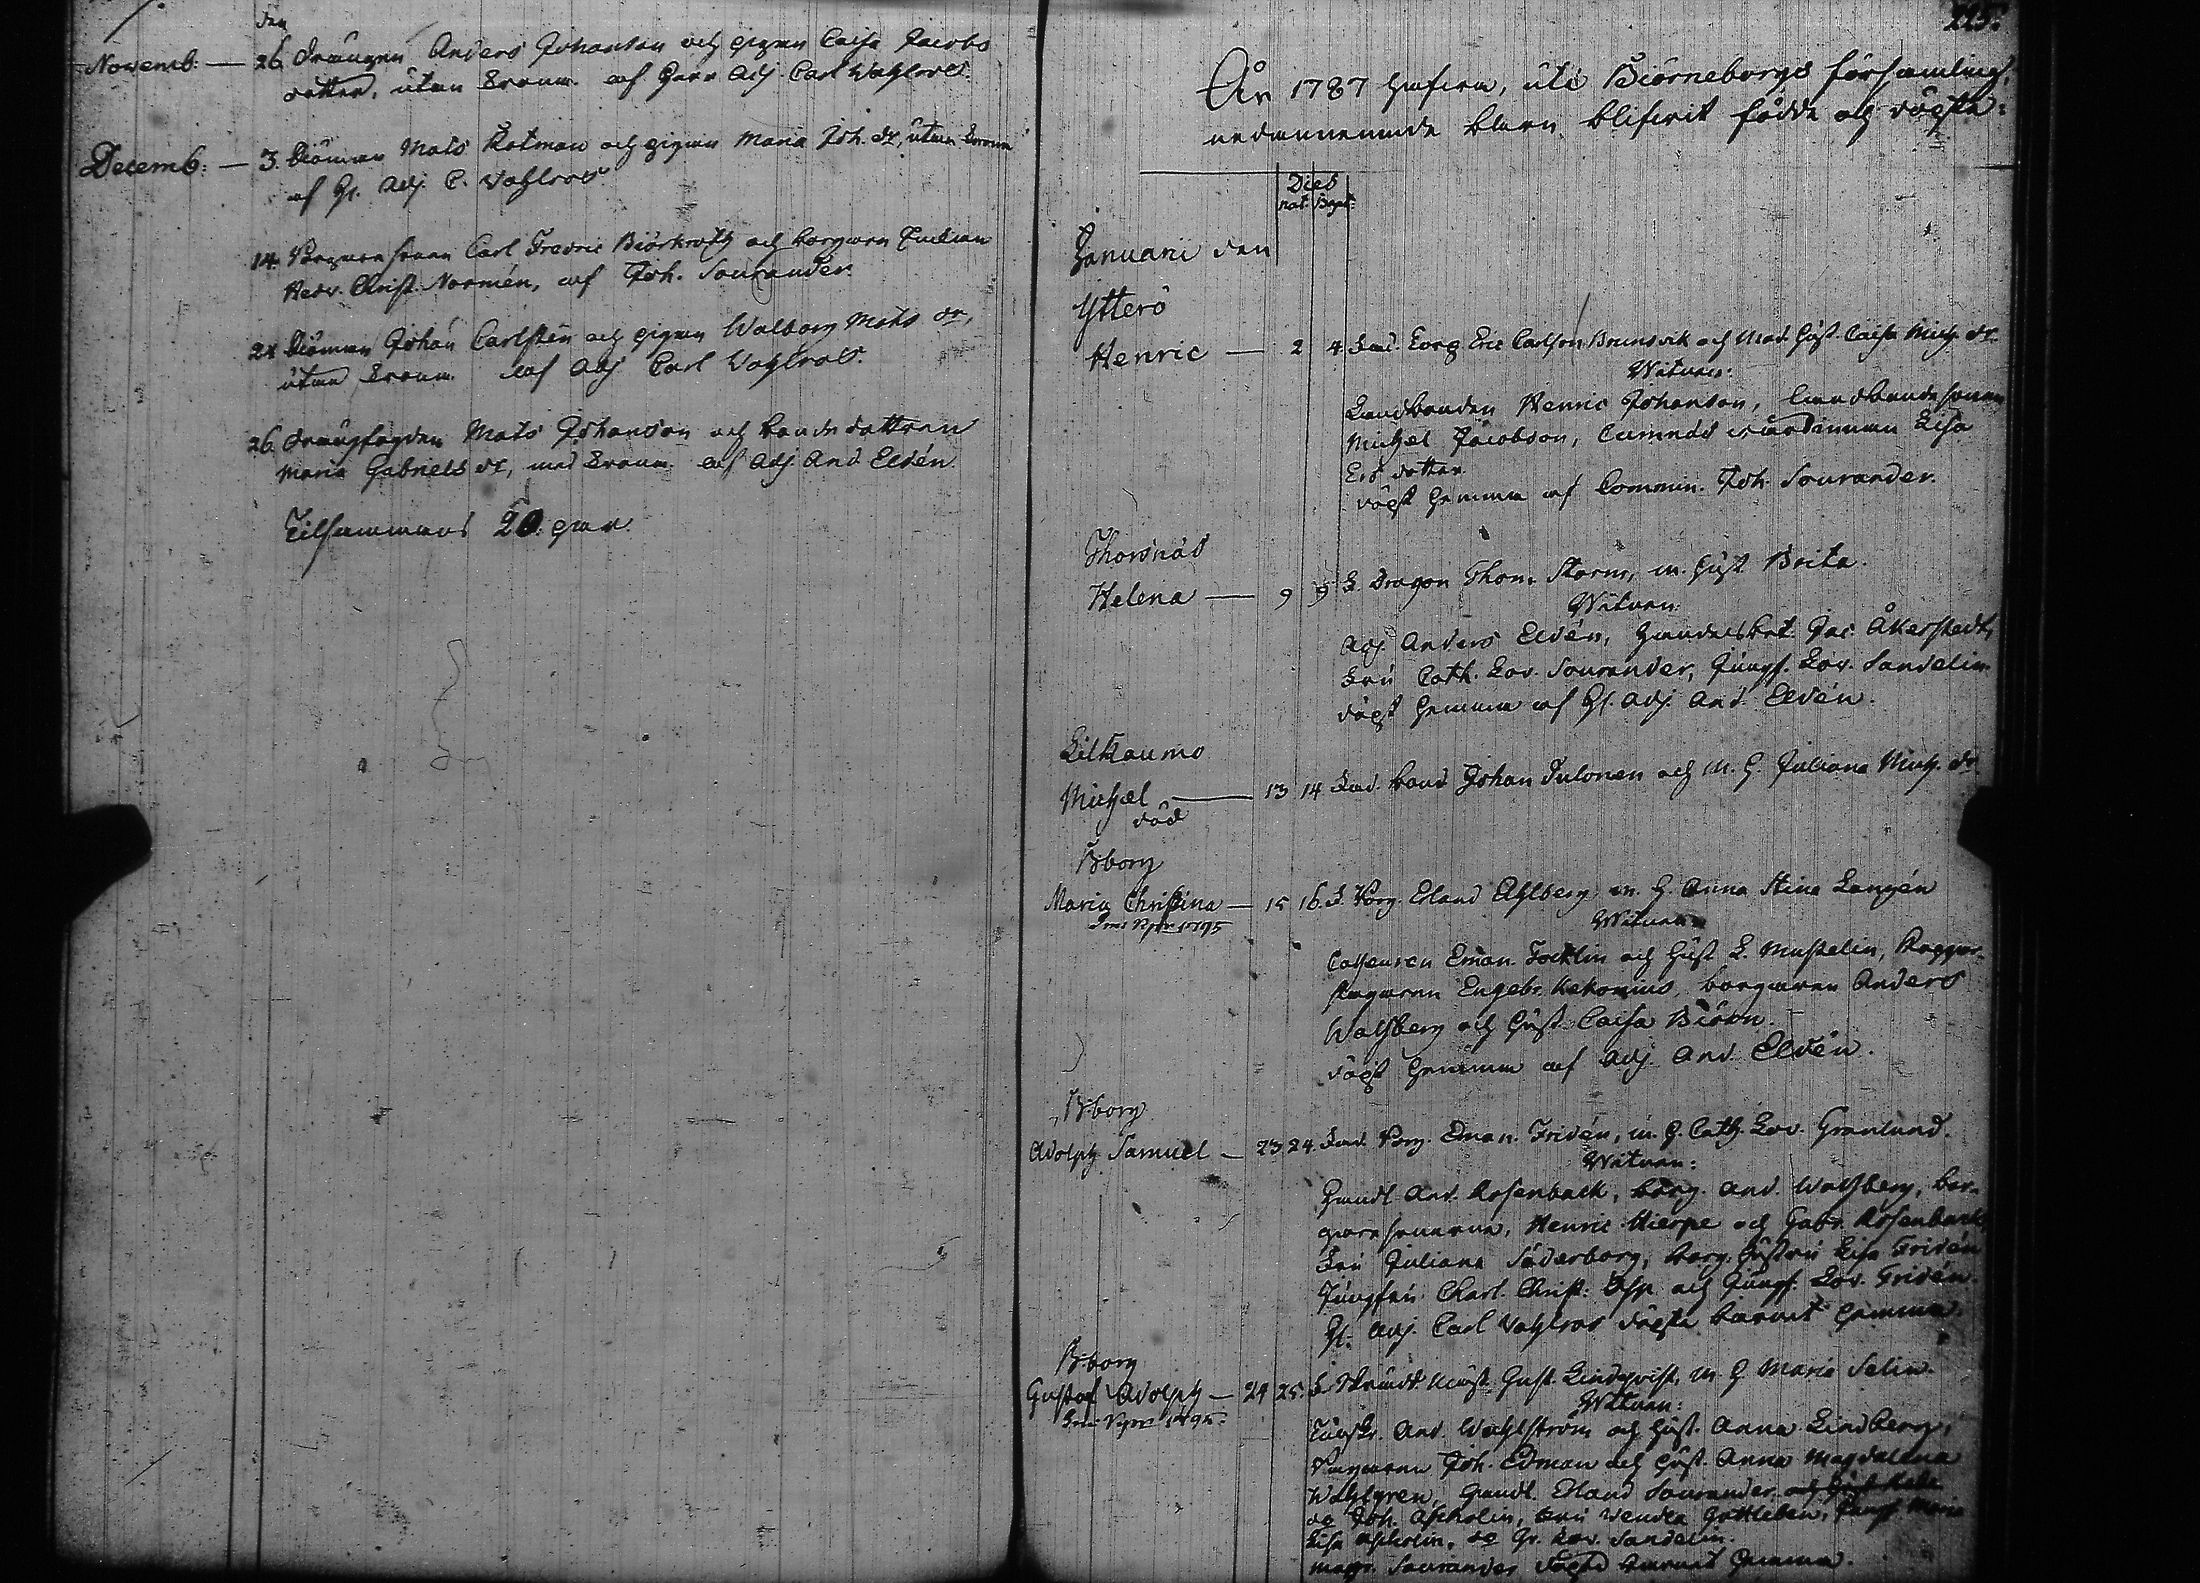 den
Novemb: — 26 drängen Anders Johanson och pigan Caisa Jacobs
dotter, utan Kronn. af Herr Adj. Carl Wahlroos.
Decemb: — 3. Båsman Mats Rotman och pigan Maria Joh. dr, utan Kronn
af Hr. Adj. C. Wahlroos.
14. Borgare sonen Carl Fredric Biörkroth och borgaren Enckian
Hedv. Christ. Normén, af Joh. Sourander.
28. Båsman Johan Carlstén och pigan Walborg Mats dr,
utan Kronn. af Adj Carl Wahlroos.
26 drängfogden Mats Johanson och bonde dottren
Maria Gabriels dr, med Kronn. af Adj. And Eldén.
Tilsammans 20. par.
225.
År 1787 hafwa, uti Biörneborgs församling,
nedannämnde barn blifwit födde och döpte:
Dies
nat. Bapt.
Januarii den
Ytterö
Henric — 2 4. Eric Carlson Brunsvik och Mod. Hust. Caisa Mich. dr.
Witnen:
Landbonden Henric Johanson, landbonde sonen
Michel Jacobson, Lisa
Ers dotter.
döpt hemma af Commin. Joh. Sourander.
Thorsnäs
Helena — 9 9 F. Dragon Thom. Storm, m. hust. Brita.
Witnen:
Adj. Anders Eldén, handelsbet. Jac. Åkerstedt,
Fru Cath. Lov. Sourander, Jungf. Lov. Sandelin.
döpt hemma af Hr. Adj. And. Eldén.
Lilraumo
Michel — 13 14 Fad. bond Johan Tulonen och m. H. Juliana Mich. dr
död
B:borg
Maria Christina — 15 16. F. Borg. Eland Ahlberg m. H. Anna Stina Langén
1795
Witnen
Emān. Focklin och hust. L. Mustelin, Koppar-
slagaren Engebr. Kekonius, borgaren Anders
Wahlberg och hust. Caisa Biörn.
döpt hemma af Adj. And. Eldén.
B:borg
Adolph Samuel — 23 24. Fad. Borg. Eman. Fridén, m. H. Cath. Lov. Granlund.
Witnen:
Handl. And. Rosenback, borg. And. Wahlberg, bor-
gare sonerna, Henric Hierpe och Gabr. Rosenback
Fru Juliana Söderborg, borg. hustru Lisa Fridén
Jungfru Charl. Christ: och Jungf. Lov. Fridén.
Hr. Adj. Carl Wahlroos döpte barnet hemma.
B:borg
Gustaf Adolph — 24 25. F. Gust. Lindqvist, m. H. Maria Selin.
Witnen:
And. Wahlström och hust. Anna Lindberg,
Borgaren Joh. Edman och hust. Anna Magdalena
Wahlgren, handl. Eland Sourander
Joh. Aschelin, Fru Vendla Gottleben, Jungf. Maria
Lisa Aschelin, Lov. Sandelin.
Mag. Sourander döpte barnet hemma.